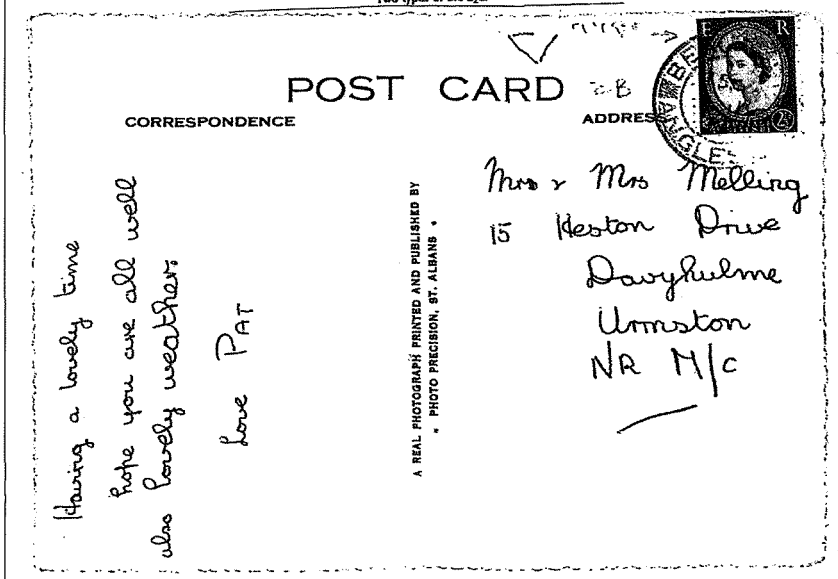 POST CARD
CORRESPONDENCE
ADDRESS
E R
Having a lovely time
hope you are all well
also lovely weather.
Love PAT
A REAL PHOTOGRAPH PRINTED AND PUBLISHED BY
PHOTO PRECISION, ST. ALBANS
Mrs & Mrs Melling
15 Heston Drive
Davyhulme
Urmston
NR M/C